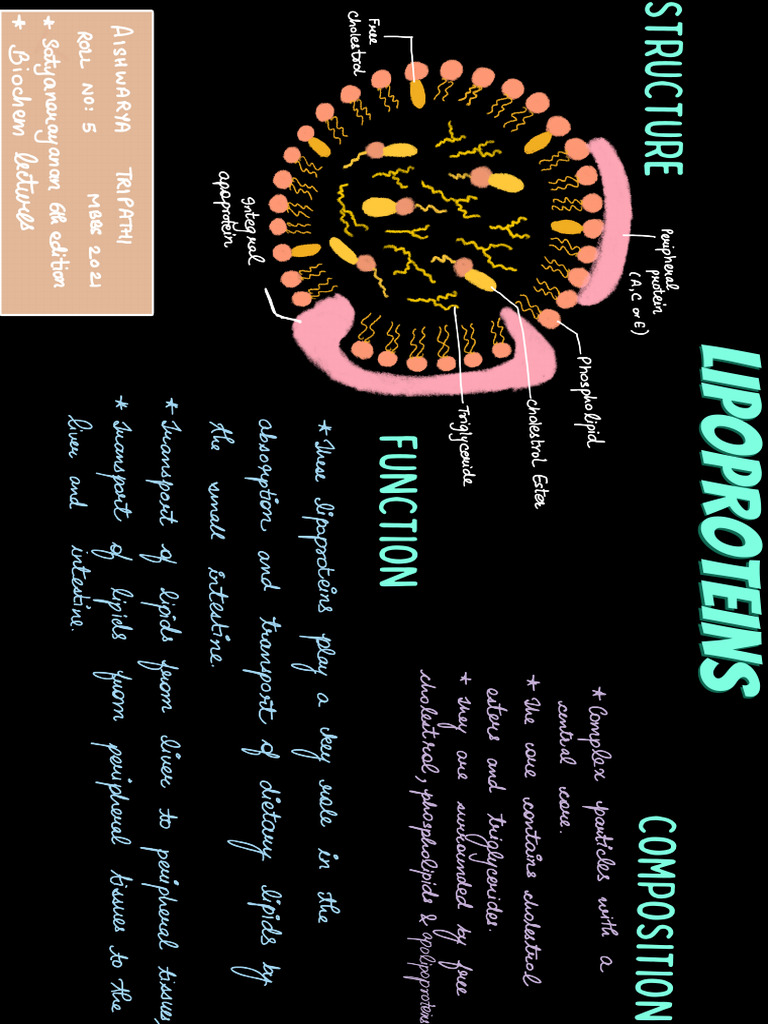 LIPOPROTEINS
STRUCTURE
Peripheral
protein
(A,C or E)
Phospholipid
cholestrol Ester
Triglyceride
Free
cholestrol
Integral
apoprotein
COMPOSITION
* Complex particles with a
central core.
* The core contains cholestrol
esters and triglycerides.
* They are surrounded by free
cholestrol, phospholipids & apolipoproteins
FUNCTION
* These lipoproteins play a key role in the
absorption and transport of dietary lipids by
the small intestine.
* Transport of lipids from liver to peripheral tissues,
* Transport of lipids from peripheral tissues to the
liver and intestine.
AISHWARYA TRIPATHI
ROLL NO: 5 MBBS 2021
* Satyanarayanan 6th edition
* Biochem lectures